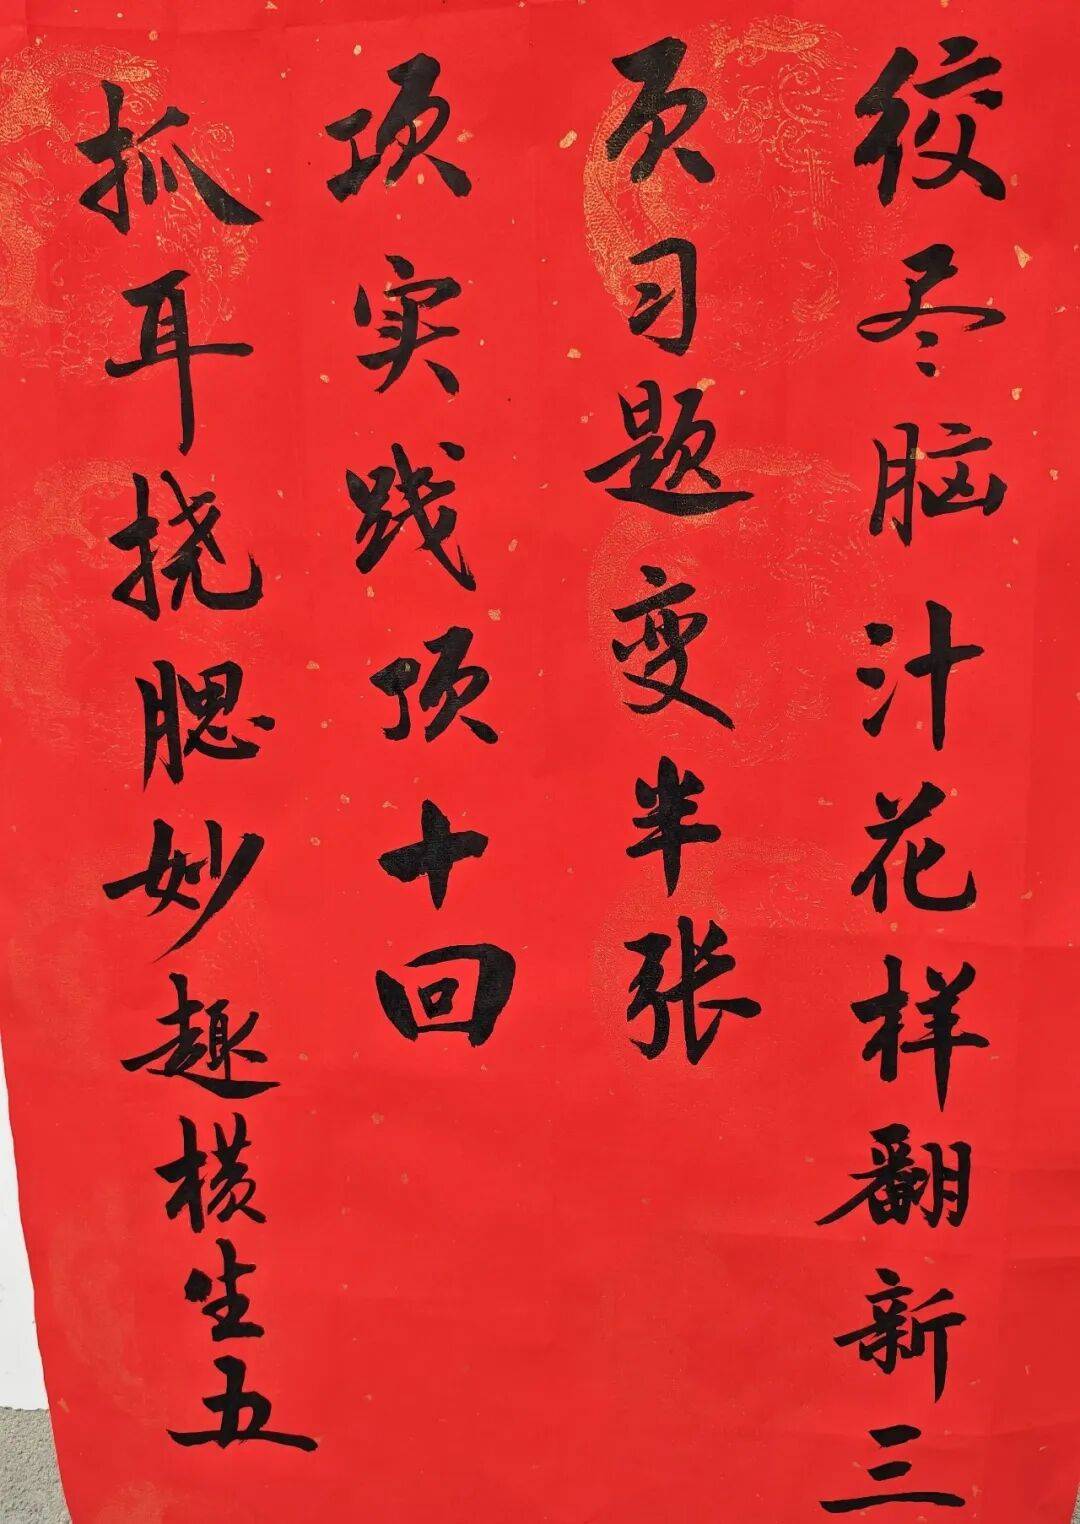 绞尽脑汁花样翻新三
页习题变半张
抓耳挠腮妙趣横生五
项实践顶十回